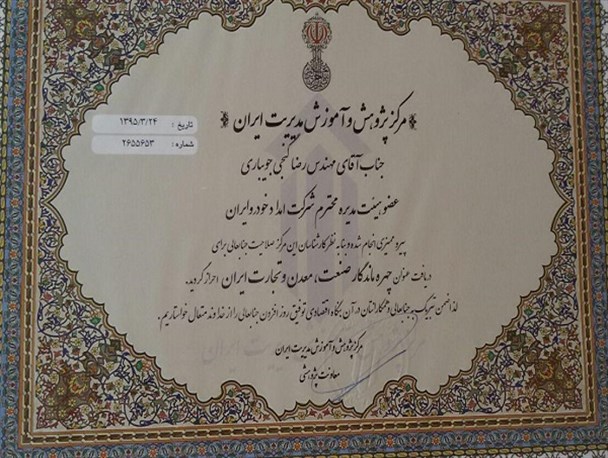 مرکز پژوهش و آموزش مدیریت ایران
تاریخ : ۱۳۹۵/۳/۲۴
شماره : ۲۶۵۵۶۵۳
جناب آقای مهندس رضا گنجی جویباری
عضو هیئت مدیره محترم شرکت امداد خودرو ایران
پیرو ممیزی انجام شده و بنا به نظر کارشناسان این مرکز صلاحیت جنابعالی برای
دریافت عنوان چهره ماندگار صنعت، معدن و تجارت ایران احراز گردید.
لذا ضمن تبریک به جنابعالی و همکارانتان در آن بنگاه اقتصادی توفیق روز افزون جنابعالی را از خداوند متعال خواستاریم.
مرکز پژوهش و آموزش مدیریت ایران
معاونت پژوهشی